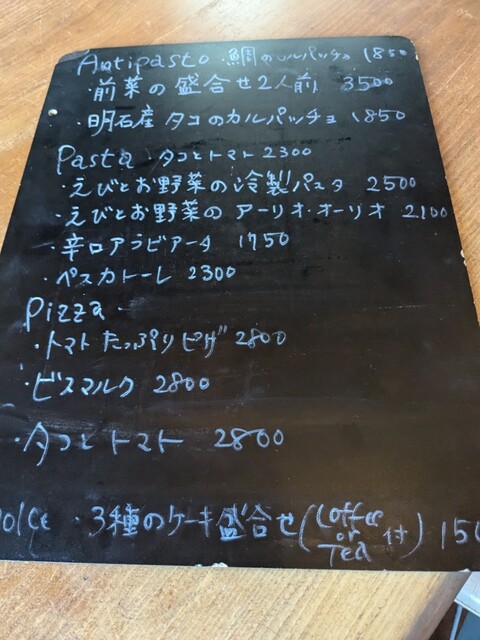 Antipasto ・鯛のカルパッチョ 1850
・前菜の盛合せ2人前 3500
・明石産 タコのカルパッチョ 1850
Pasta タコとトマト 2300
・えびとお野菜の冷製パスタ 2500
・えびとお野菜の アーリオ・オーリオ 2100
・辛口アラビアータ 1750
・ペスカトーレ 2300
Pizza
・トマトたっぷりピザ 2800
・ビスマルク 2800
・タコとトマト 2800
olce ・3種のケーキ盛合せ (Coffee or Tea 付) 150